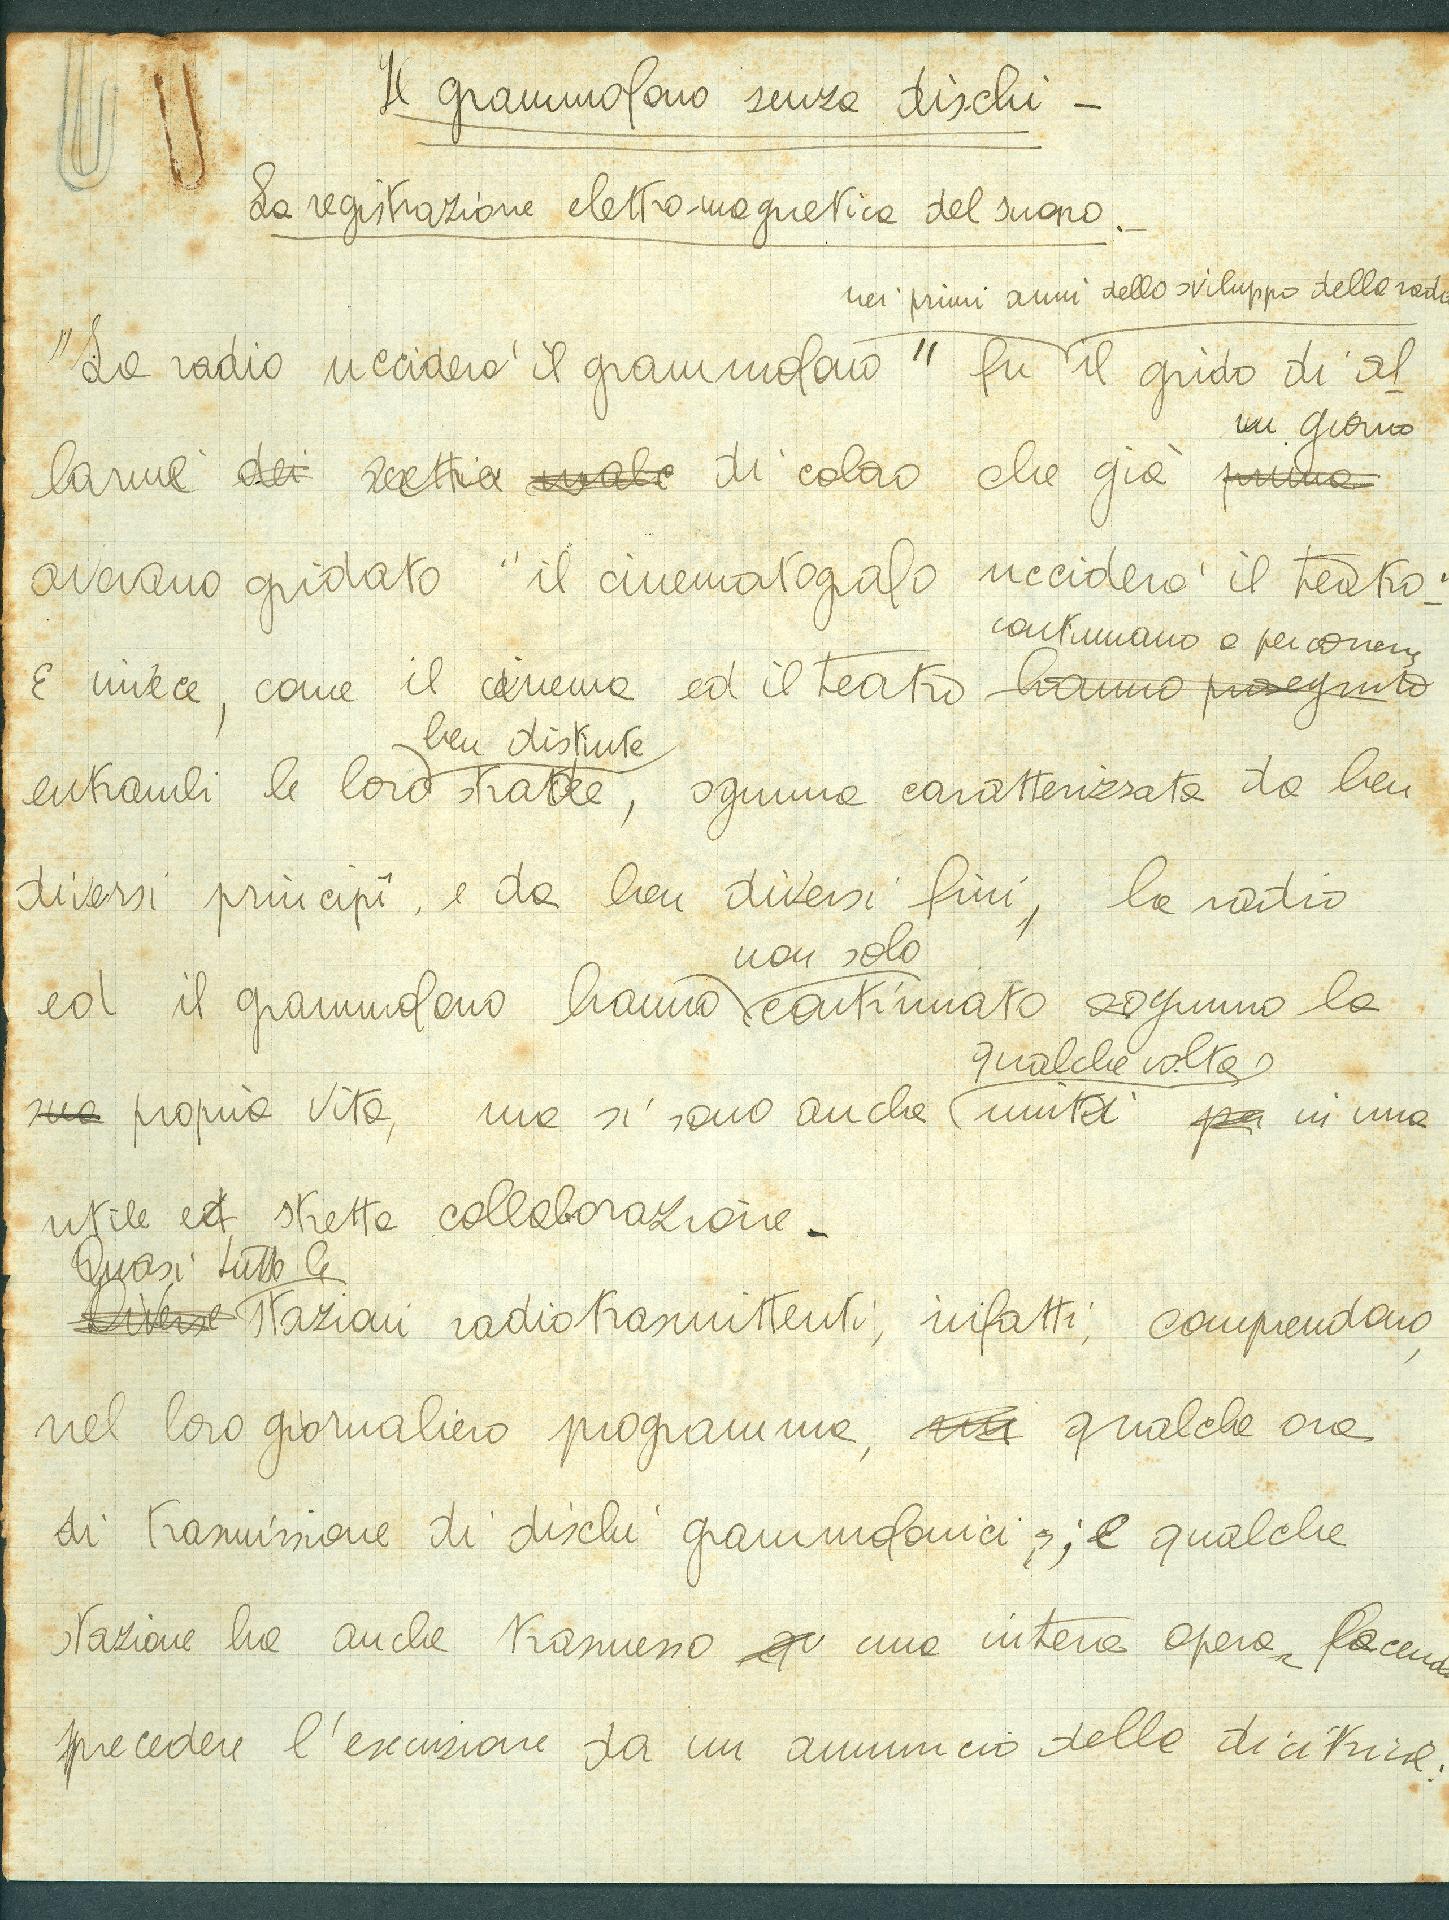 Il grammofono senza dischi -
La registrazione elettro-magnetica del suono.-
nei primi anni dello sviluppo della radio
"La radio ucciderà il grammofono" fu il grido di al
un giorno
larme dei di coloro che già prima
avevano gridato "il cinematografo ucciderà il teatro".
continuano a percorrere
E invece, come il cinema ed il teatro hanno proseguito
ben distinte
entrambi le loro strade, ognuna caratterizzata da ben
diversi principî, e da ben diversi fini, la radio
non solo
ed il grammofono hanno continuato ognuno la
qualche volta
sua propria vita, ma si sono anche uniti in una
utile ed stretta collaborazione.-
Quasi tutte le
Diverse stazioni radiotrasmittenti, infatti, comprendono,
nel loro giornaliero programma, qualche ora
di trasmissione di dischi grammofonici; e qualche
stazione ha anche trasmesso una intera opera, facendo
precedere l'esecuzione da un annuncio della dicitrice: